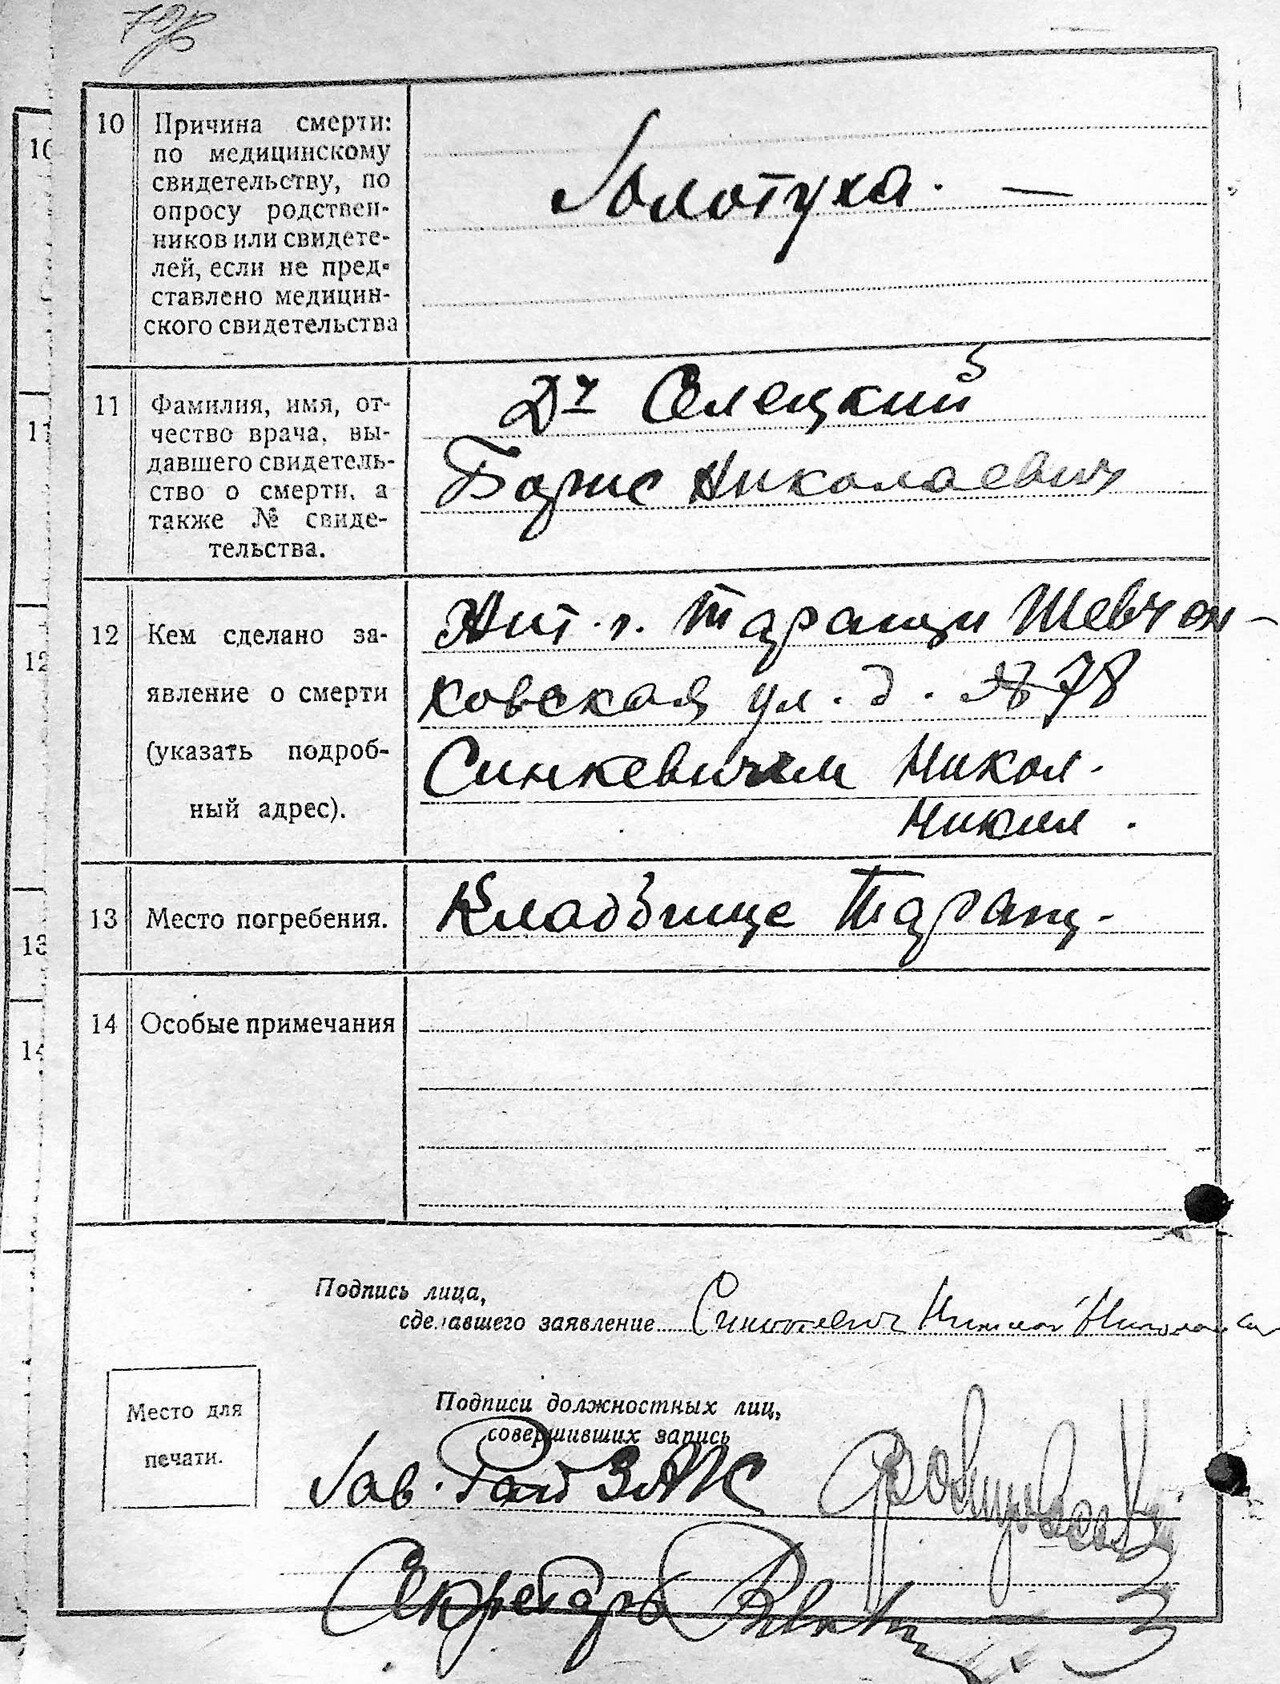 10 Причина смерти:
по медицинскому
свидетельству, по
опросу родствен-
ников или свидете-
лей, если не пред-
ставлено медицин-
ского свидетельства
Золотуха. —
11 Фамилия, имя, от-
чество врача, вы-
давшего свидетель-
ство о смерти, а
также № свиде-
тельства.
Др Селецкий
Борис Николаевич
12 Кем сделано за-
явление о смерти
(указать подроб-
ный адрес).
Жит. г. Таращи Шевчен-
ковская ул. д. № 78
Синкевичем Никол.
Никол.
13 Место погребения.
Кладбище Таращ.
14 Особые примечания
10
11
12
13
14
Подпись лица,
сделавшего заявление Синкевич Николай
Место для
печати.
Подписи должностных лиц,
совершивших запись
Зав. Рай ЗАГС
Секретарь